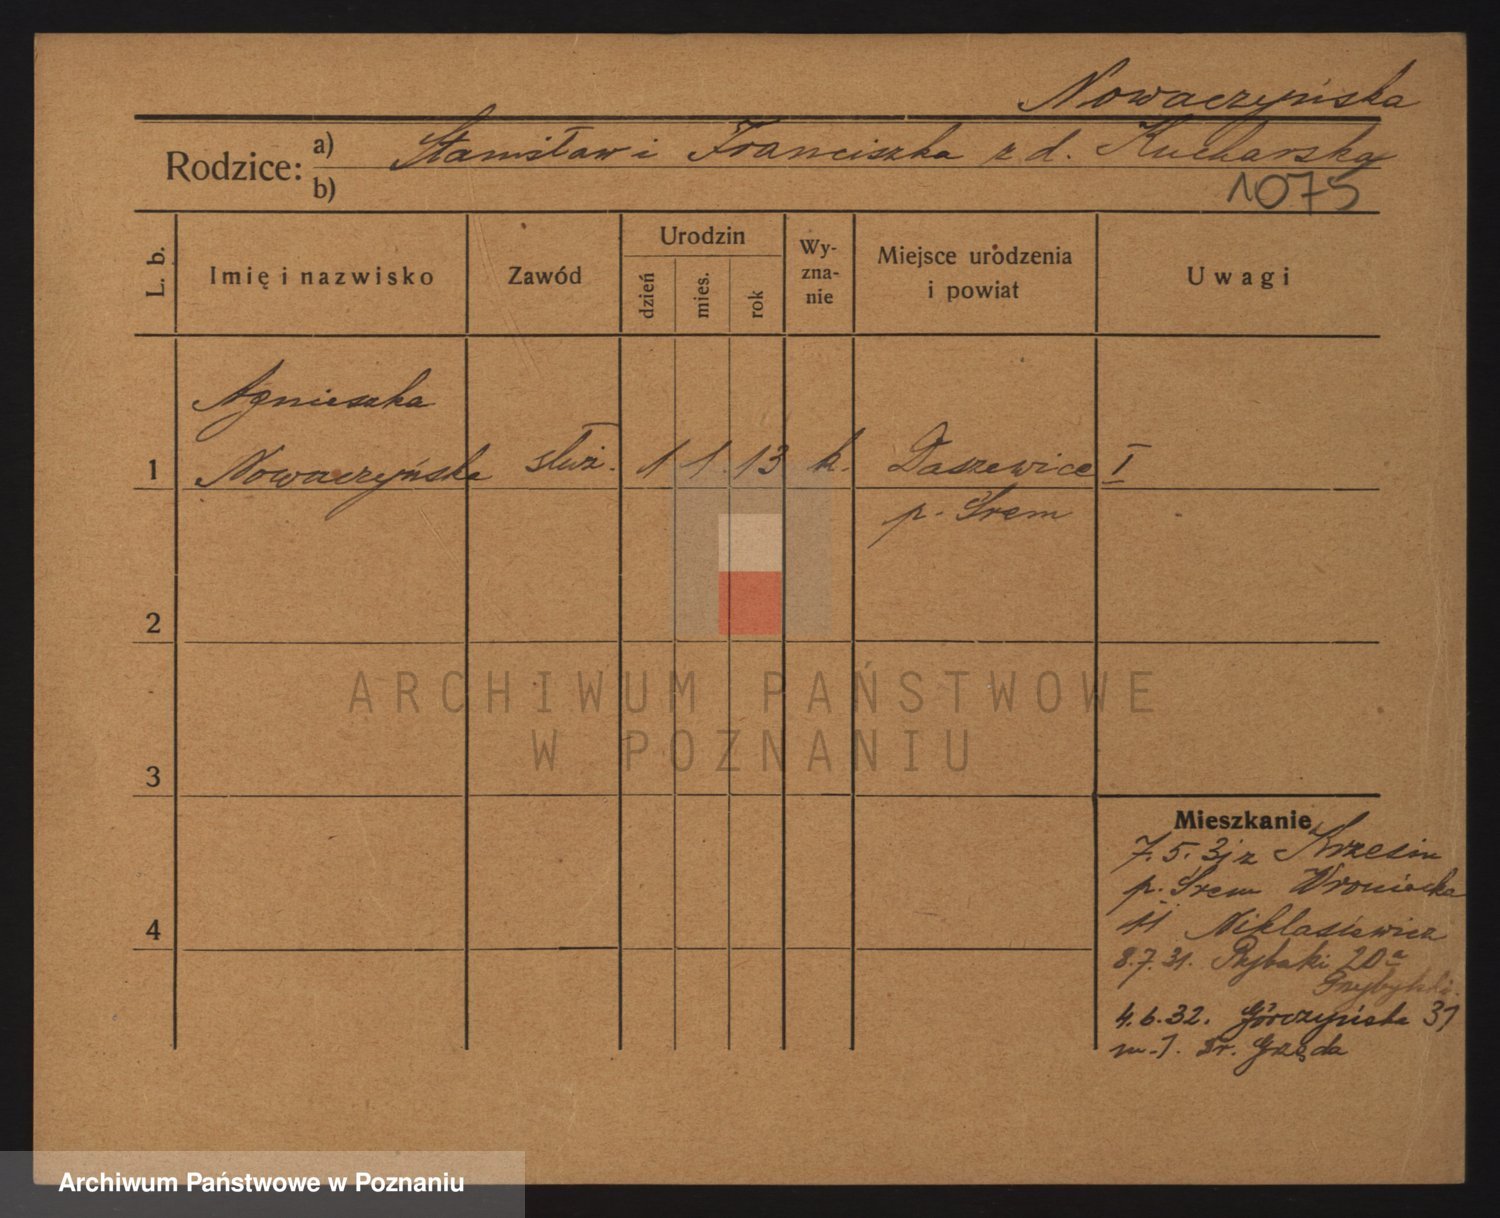 Nowaczyńska
Rodzice: a) Stanisław i Franciszka z d. Kucharska
b)
1075
L. b.
Imię i nazwisko
Zawód
Urodzin
dzień
mies.
rok
Wy-
zna-
nie
Miejsce urodzenia
i powiat
Uwagi
Agnieszka
1 Nowaczyńska służ. 1 1. 13 k. Daszewice I
p. Śrem
2
3
4
Mieszkanie
7. 5. 31 z Krzesin
p. Śrem Wroniecka
11 Niklasiewicz
8.7.31. Rybaki 20a
Przybylski
4.6.32. Górczyńska 31
m. 1. Gręda
ARCHIWUM PAŃSTWOWE
W POZNANIU
Archiwum Państwowe w Poznaniu